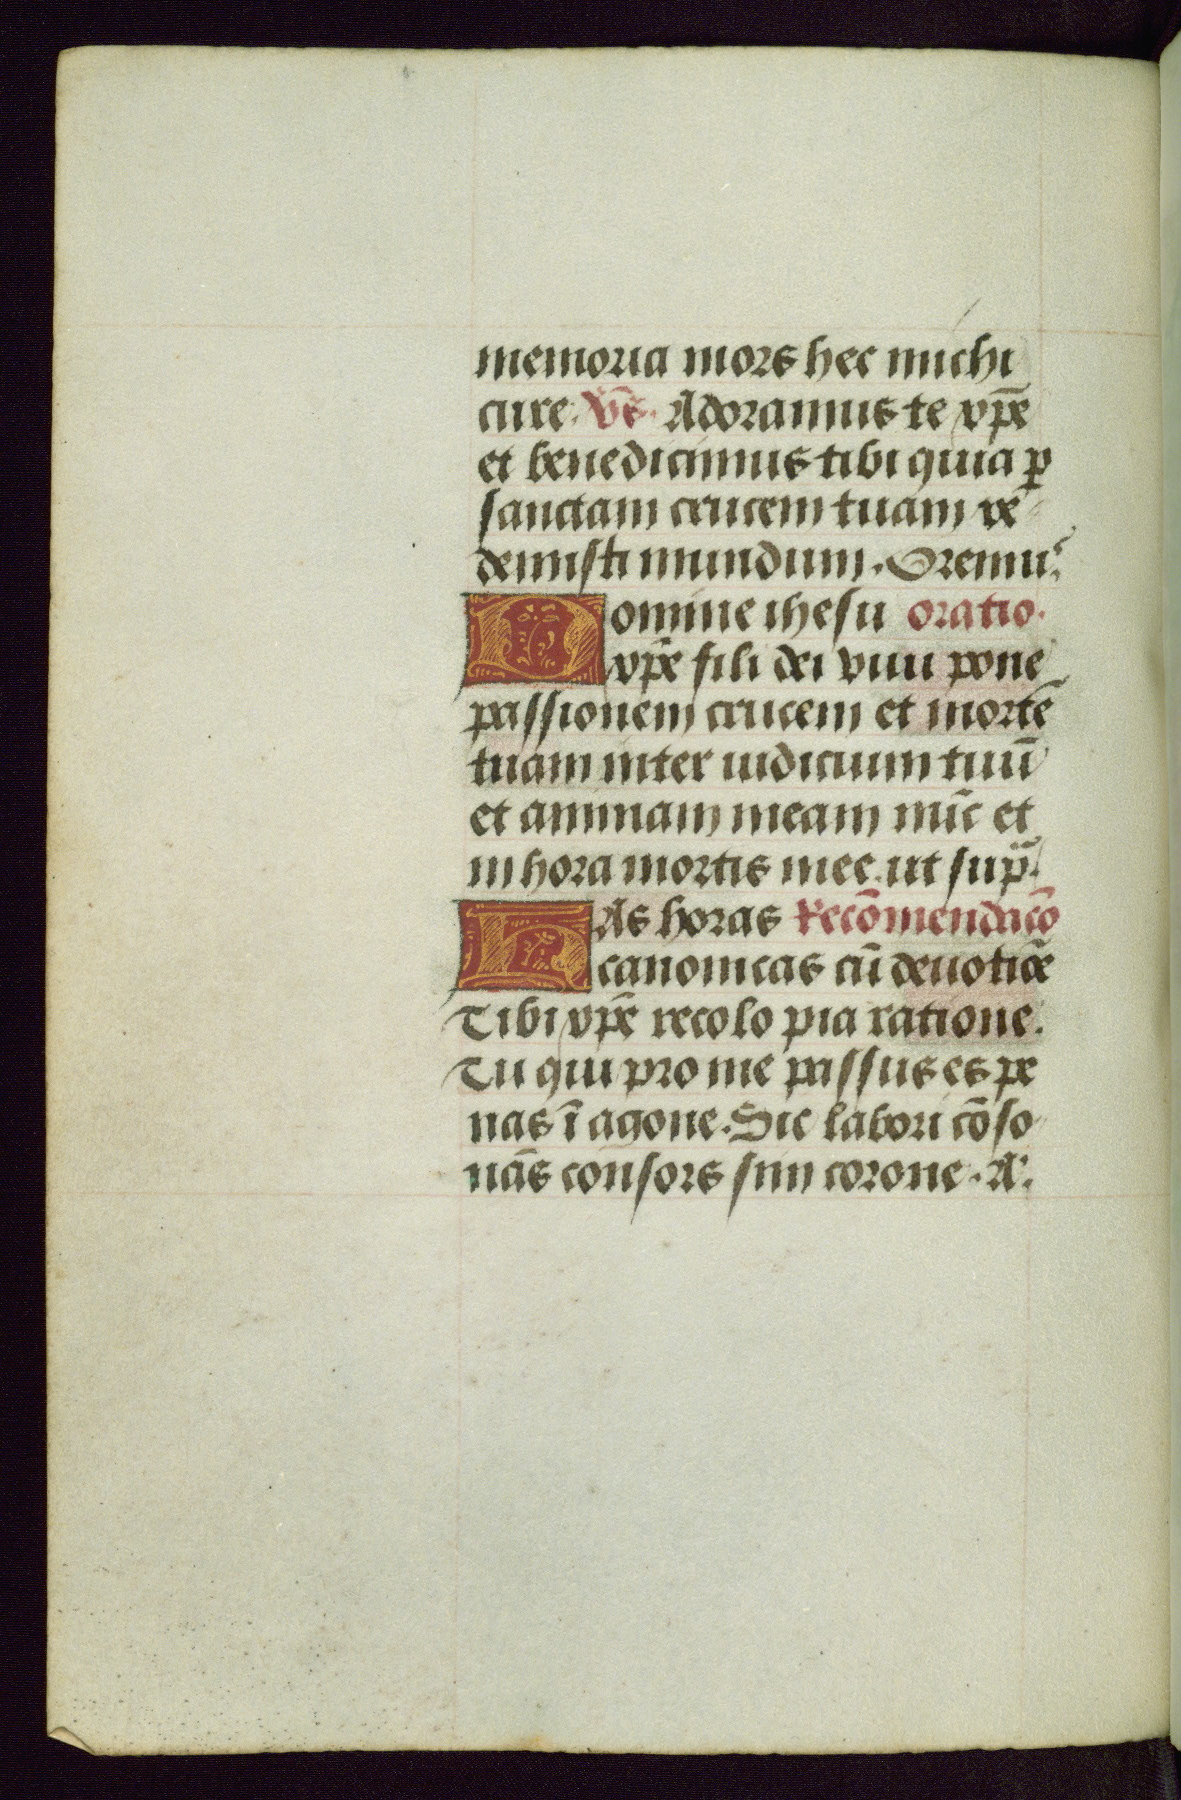 memoria mors hec michi
cure. v̄s. Adoramus te xp̄e
et benedicimus tibi quia ꝑ
sanctam crucem tuam re
demisti mundum. Oremus
Domine ihesu oratio.
xp̄e fili dei viui pone
passionem crucem et mortē
tuam inter iudicium tuū
et animam meam nūc et
in hora mortis mee. ut supᵃ.
HAs horas Recōmendacō
canonicas cū deuotiōe
Tibi xp̄e recolo pia ratione.
Tu qui pro me passus es pe
nas ī agone. Sic labori cōso
nās consors sim corone. A.